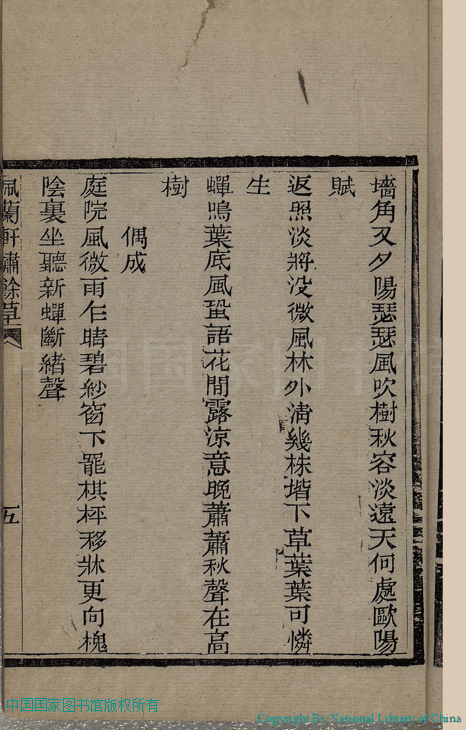 墻角又夕陽瑟瑟風吹樹秋容淡遠天何處歐陽
賦
返照淡將没微風林外淸幾株堦下草葉葉可憐
生
蟬鳴葉底風蛩語花間露涼意晚蕭蕭秋聲在高
樹
偶成
庭院風微雨乍晴碧紗窗下罷棋枰移牀更向槐
陰裏坐聽新蟬斷續聲
佩蘭軒繡餘草
五
中国国家图书馆版权所有
Copyright By National Library of China